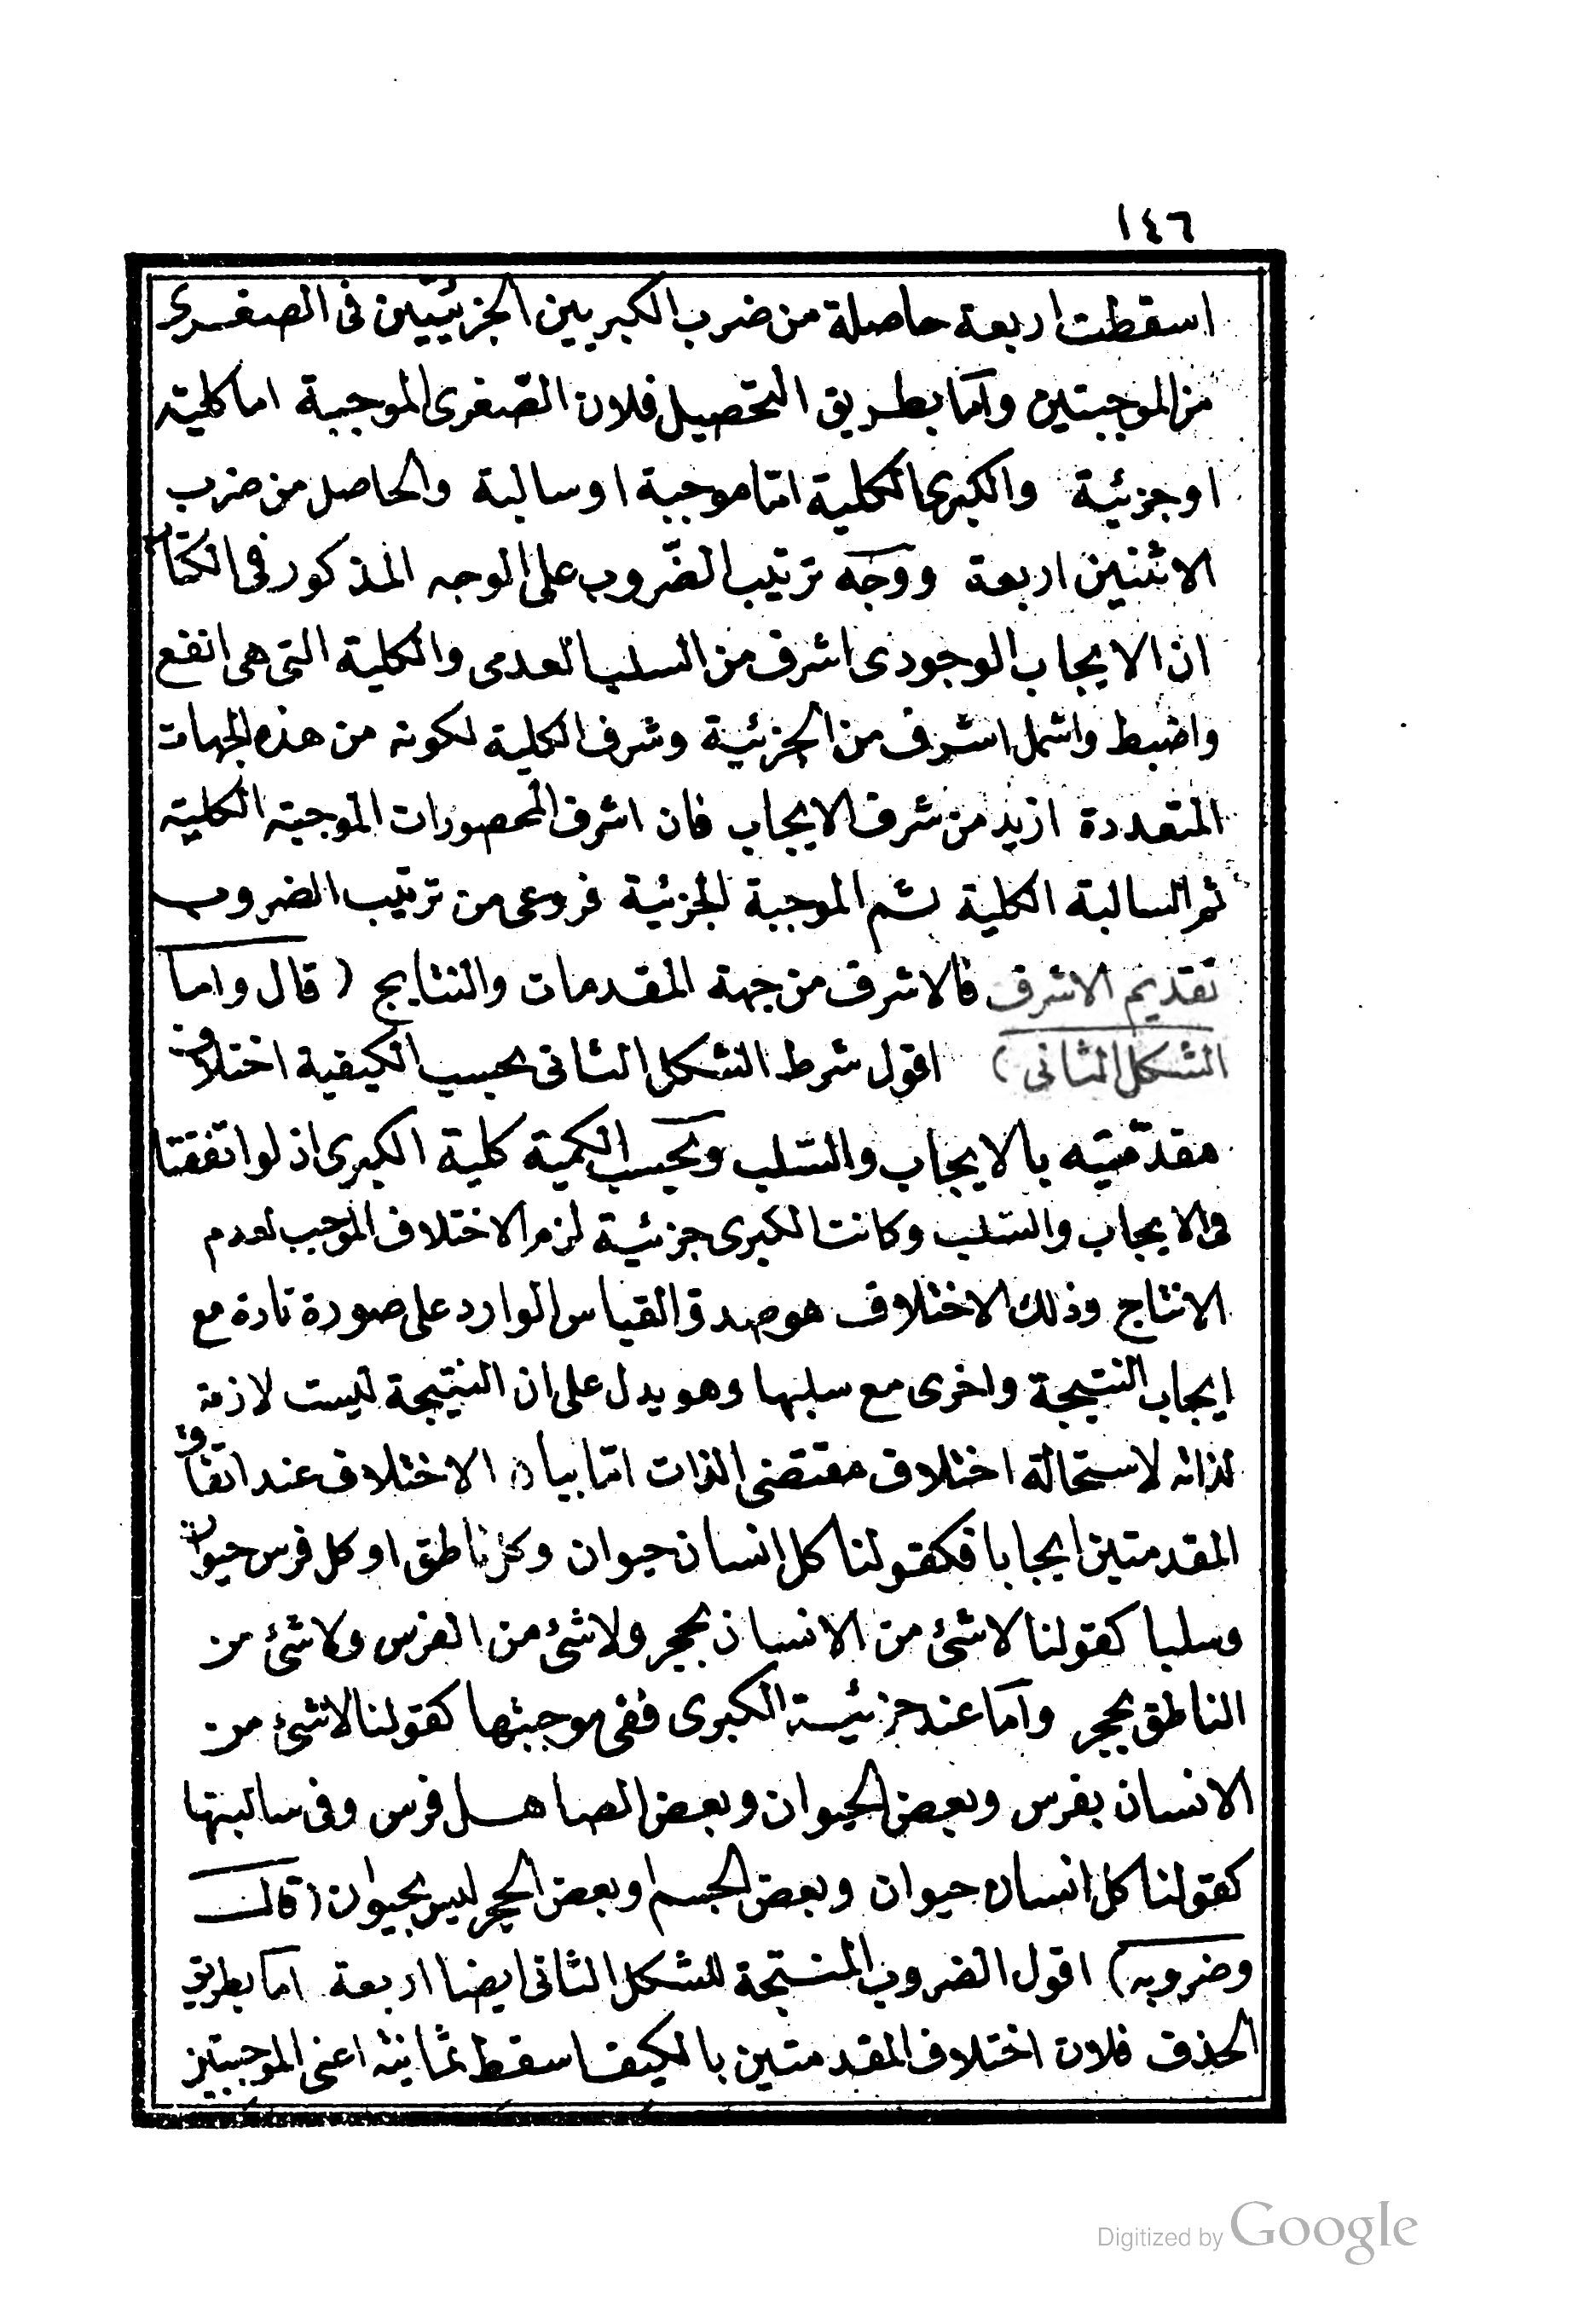 ١٤٦
اسقطت اربعة حاصلة من ضرب الكبريين الجزئيّتين فى الصغرى
من الموجبتين وامّا بطريق التحصيل فلان الصّغرى الموجبة اما كلية
او جزئية والكبرى الكلية امّا موجبة او سالبة والحاصل من ضرب
الاثنين اربعة ووجه ترتيب الضّروب على الوجه المذكور فى الكتاب
ان الايجاب الوجودى اشرف من السلب العدمى والكلية التى هى انفع
واضبط واشمل اشرف من الجزئية وشرف الكلية لكونه من هذه الجهات
المتعددة ازيد من شرف الايجاب فان اشرف المحصورات الموجبة الكلية
ثم السالبة الكلية ثم الموجبة الجزئية فروعى من ترتيب الضروب
تقديم الاشرف فالاشرف من جهة المقدمات والنتايج (قال واما
الشكل الثانى) اقول شرط الشكل الثانى بحسب الكيفية اختلاف
مقدّمتيه بالايجاب والسّلب وبحسب الكمية كلية الكبرى اذ لو اتفقتا
فى الايجاب والسّلب وكانت الكبرى جزئية لزم الاختلاف الموجب لعدم
الانتاج وذلك الاختلاف هو صدق القياس الوارد على صورة تارة مع
ايجاب النتيجة واخرى مع سلبها وهو يدل على ان النتيجة ليست لازمة
لذاته لاستحالة اختلاف مقتضى الذات امّا بيان الاختلاف عند اتفاق
المقدمتين ايجابا فكقولنا كل انسان حيوان وكل ناطق او كل فرس حيوان
وسلبا كقولنا لاشئ من الانسان بحجر ولاشئ من الفرس ولاشئ من
الناطق بحجر وامّا عند جزئية الكبرى ففى موجبتها كقولنا لاشئ من
الانسان بفرس وبعض الحيوان وبعض الصاهل فرس وفى سالبتها
كقولنا كل انسان حيوان وبعض الجسم او بعض الحجر ليس بحيوان (قال
وضروبه) اقول الضروب المنتجة للشكل الثانى ايضا اربعة اما بطريق
الحذف فلان اختلاف المقدمتين بالكيف اسقط ثمانية اعنى الموجبتين
Digitized by Google